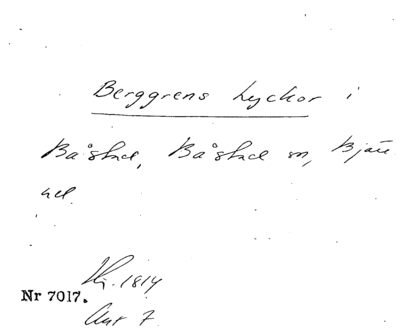 Berggrens Lyckor i
Båstad, Båstad sn, Bjäre
hd.
1814
Nr 7017.
Akt 7